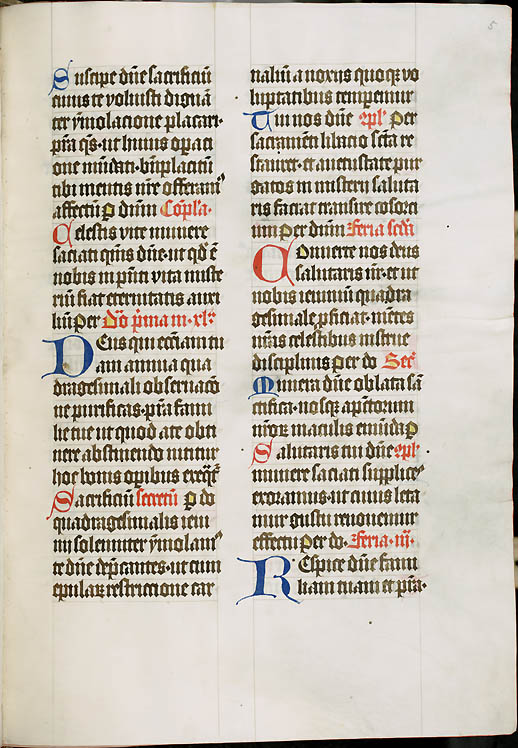 5
Suscipe dñe sacrificiũ
cuius te voluisti dignãt
ter ymolacione placari·
pr̃a q̃s· ut huius op̃aci
one mũdati· bñplacitũ
tibi mentis nr̃e offeram9
affectũ p dñm Cõpl̃a·
Celestis vite munere
saciati q̃ms dñe· ut qd̃ ẽ
nobis in p̃nti vita miste
riũ fiat eternitatis auxi
liũ Per Dõo p̃ma in xlᵃ
Deus qui eccl̃iam tu
am annua qua
dragesimali obseruacõ
ne purificas· pr̃a fami
lie tue ut quod a te obti
nere abstinendo nititur
hoc bonis opibus exeq̃r̃
Sacrificiũ secretũ p do
quadragesimalis ieiu
nii solemniter ymolam9
te dñe dep̃cantes· ut cum
epular̃ restrictione car
naliũ a noxijs quoq̃ vo
luptatibus temperemur
Tui nos dñe cõpl̃ Per
sacramẽti libacio scã re
stauret· et a uetustate pur
gatos in misterij saluta
ris faciat transire cõsorci
um Per dñm Feria scdã
Conuerte nos deus
salutaris nr̃· et ut
nobis ieiuniũ quadra
gesimale p̃ficiat· mẽtes
nr̃as celestibus instrue
disciplinis Per do Secr̃
Munera dñe oblata sã
ctifica· nosq̃ a pctõrum
nr̃or̃ maculis emũda p
Salutaris tui dñe cõpl̃
munere saciati supplices
exoramus· ut cuius leta
mur gustu renouemur
effectu Per do· Feria· iij·
Respice dñe fami
liam tuam et pr̃a·